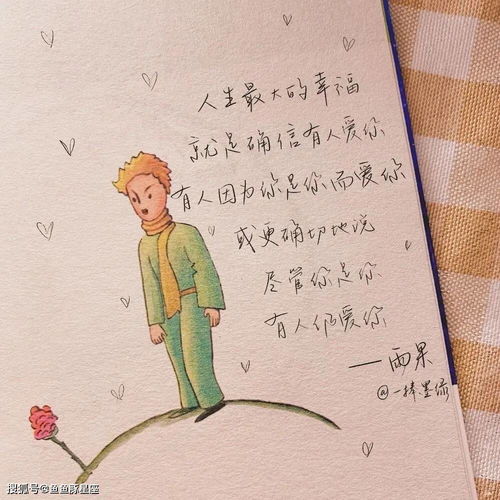 人生最大的幸福
就是确信有人爱你
有人因为你是你而爱你
或更确切地说
尽管你是你
有人仍爱你
——雨果
@一捧墨绿
搜狐号@鱼鱼酥星座